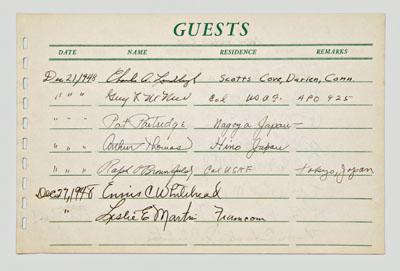 GUESTS
DATE NAME RESIDENCE REMARKS
Dec 21, 1948 Charles A. Lindbergh Scotts Cove, Darien, Conn.
" " " Col USAF APO 925
" " Pat Partridge Nagoya Japan
" " Arthur Thomas Japan
" " Ralph Col USAF Tokyo, Japan
Dec 27, 1948 Ennis C Whitehead
" Leslie E Martin